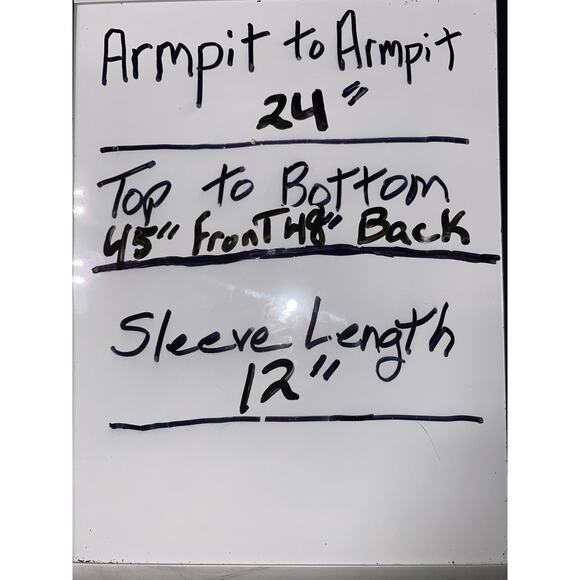 Armpit to Armpit
24"
Top to Bottom
45" FronT 48" Back
Sleeve Length
12"